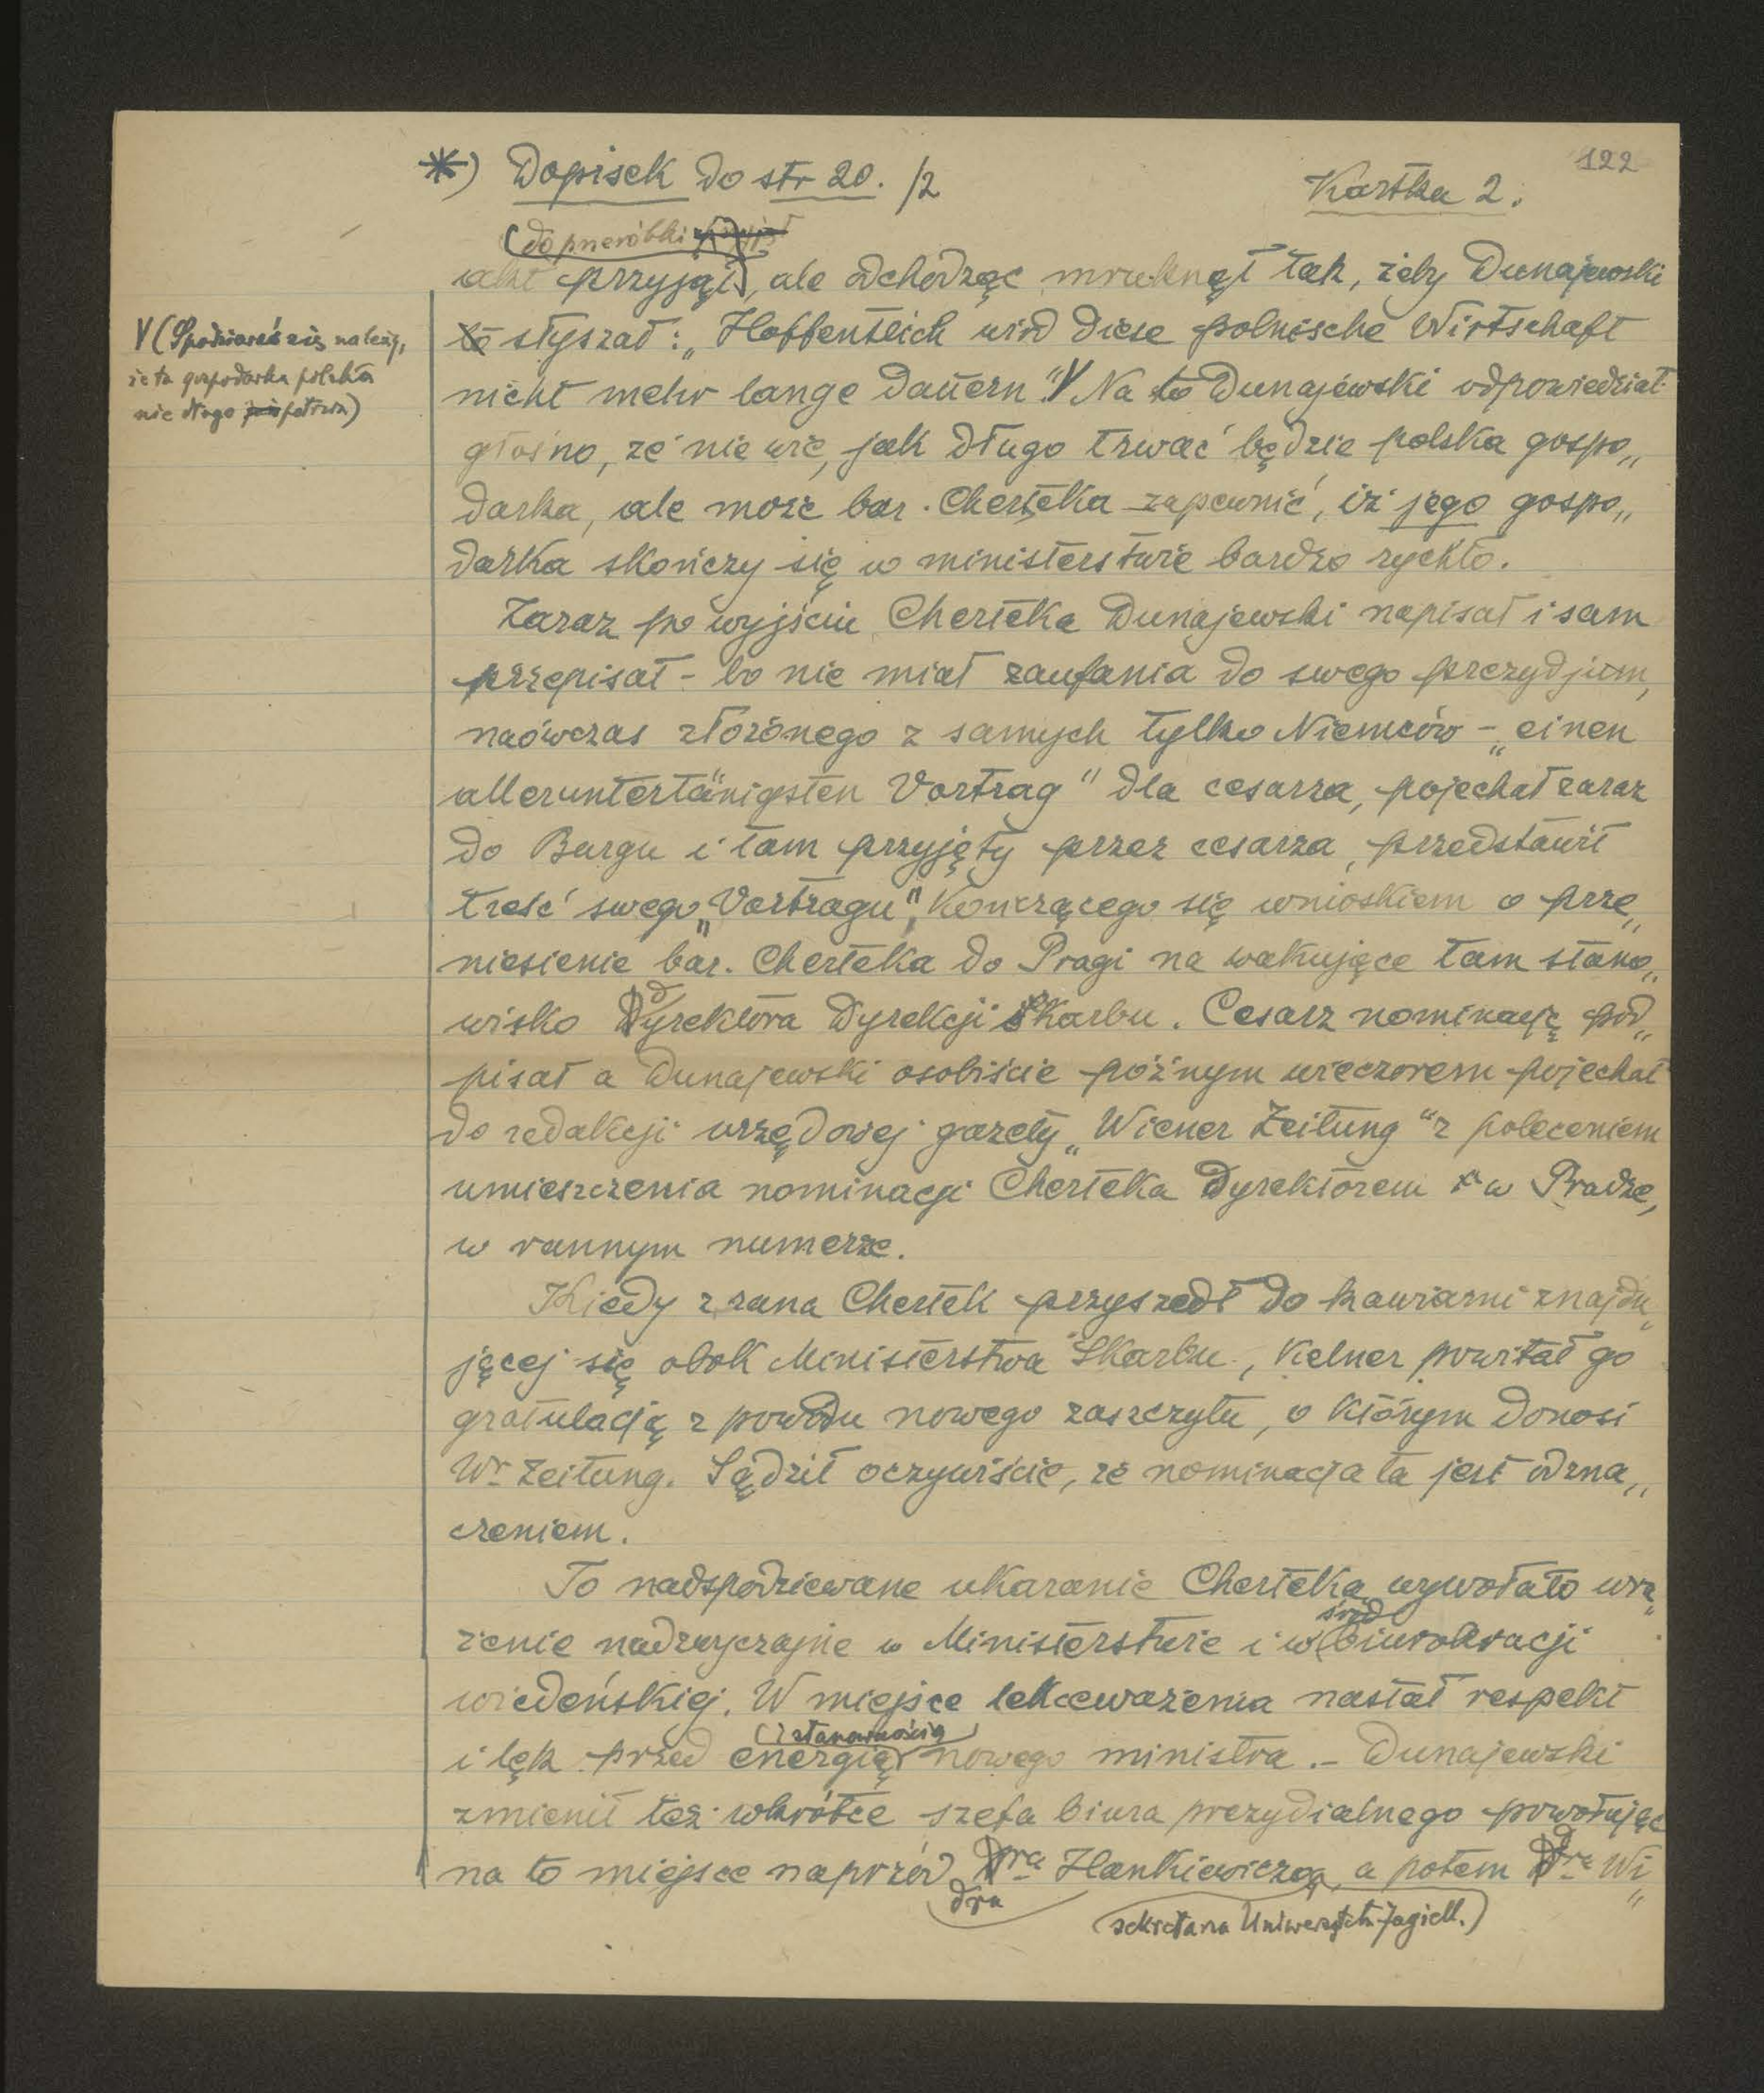 122
*) Dopisek do str 20. /2
Kartka 2.
(do przeróbki
akt przyjął), ale odchodząc mruknął tak, żeby Dunajewski
to słyszał: „Hoffentlich wird diese polnische Wirtschaft
nicht mehr lange dauern". V Na to Dunajewski odpowiedział
V (Spodziewać się należy,
że ta gospodarka polska
nie długo potrwa)
głośno, że nie wie, jak długo trwać będzie polska gospo„
darka, ale może bar. Cherteka zapewnić, iż jego gospo„
darka skończy się w ministerstwie bardzo rychło.
Zaraz po wyjściu Cherteka Dunajewski napisał i sam
przepisał - bo nie miał zaufania do swego prezydjum,
naówczas złożonego z samych tylko Niemców - „einen
alleruntertänigsten Vortrag" dla cesarza, pojechał zaraz
do Burgu i tam przyjęty przez cesarza, przedstawił
treść swego „Vortragu", kończącego się wnioskiem o prze„
niesienie bar. Cherteka do Pragi na wakujące tam stano„
wisko dyrektora Dyrekcji Skarbu. Cesarz nominację pod„
pisał a Dunajewski osobiście późnym wieczorem pojechał
do redakcji urzędowej gazety „Wiener Zeitung" z poleceniem
umieszczenia nominacji Cherteka dyrektorem w Pradze,
w rannym numerze.
Kiedy z rana Chertek przyszedł do kawiarni znajdu„
jącej się obok Ministerstwa Skarbu, kelner powitał go
gratulacją z powodu nowego zaszczytu, o którym donosi
Wr Zeitung. Sądził oczywiście, że nominacja ta jest odzna„
czeniem.
To nadspodziewane ukaranie Cherteka wywołało wra„
żenie nadzwyczajne w Ministerstwie i wśród biurokracji
wiedeńskiej. W miejsce lekceważenia nastał respekt
i lęk przed energią (i stanowością) nowego ministra. - Dunajewski
zmienił też wkrótce szefa biura prezydialnego powołując
na to miejsce naprzód dra Hankiewicza, a potem dra Wi„
(sekretarza Uniwersytetu Jagiell.)